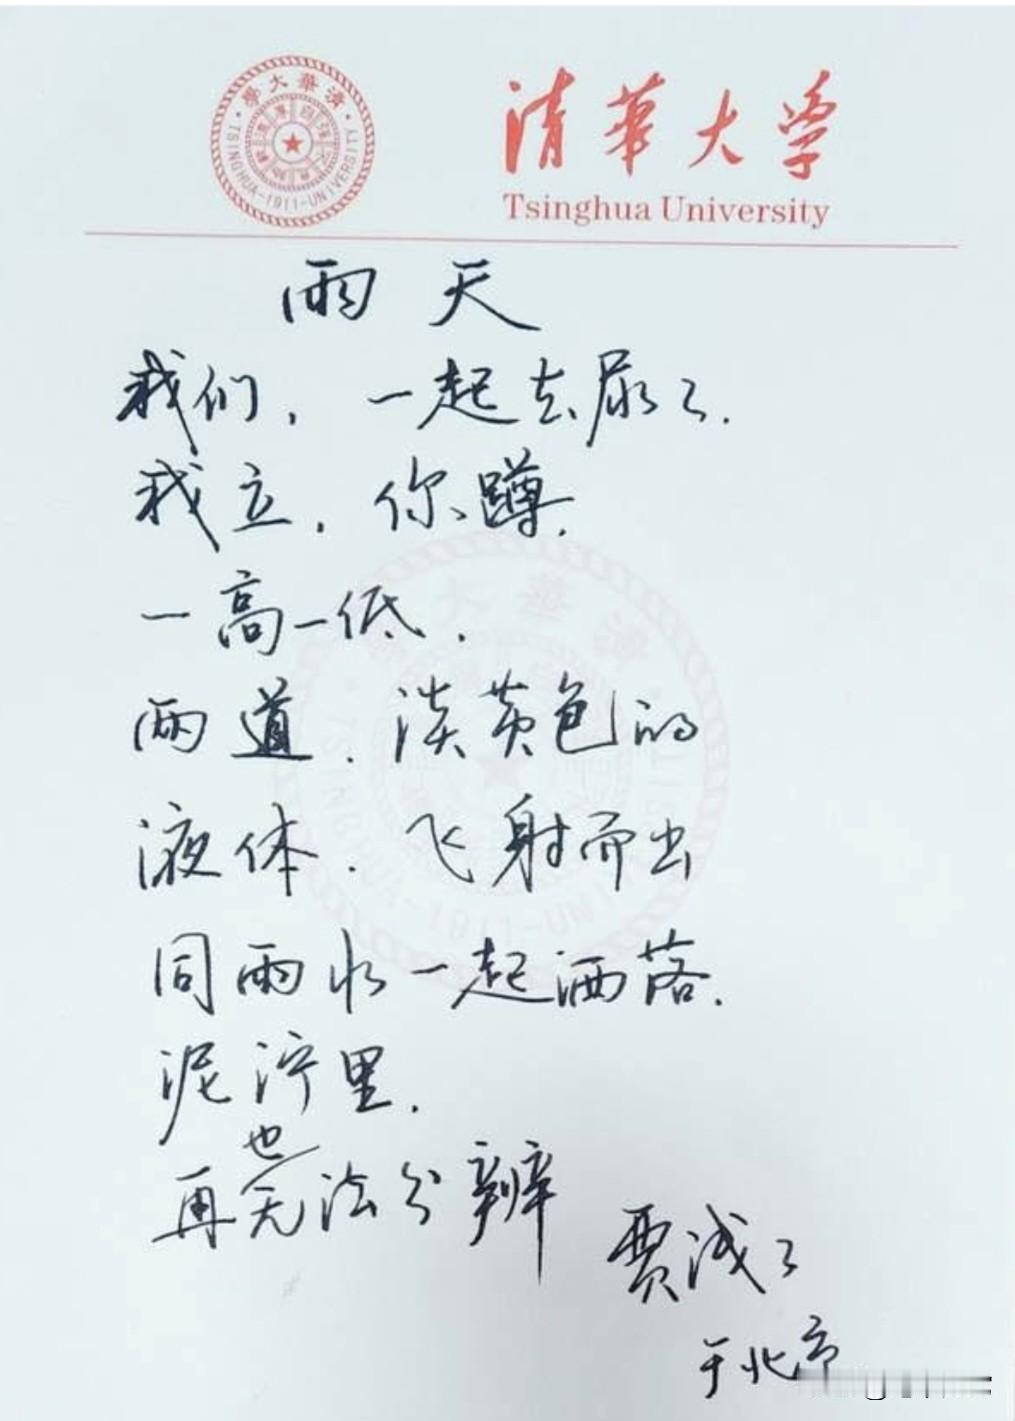 清華大学
Tsinghua University
清華大學
TSINGHUA-1911-UNIVERSITY
雨天
我们，一起去尿了.
我立，你蹲.
一高一低.
两道.淡黄色的
液体.飞射而出
同雨水一起洒落.
泥泞里.
也
再无法分辨
贾浅了
于北京